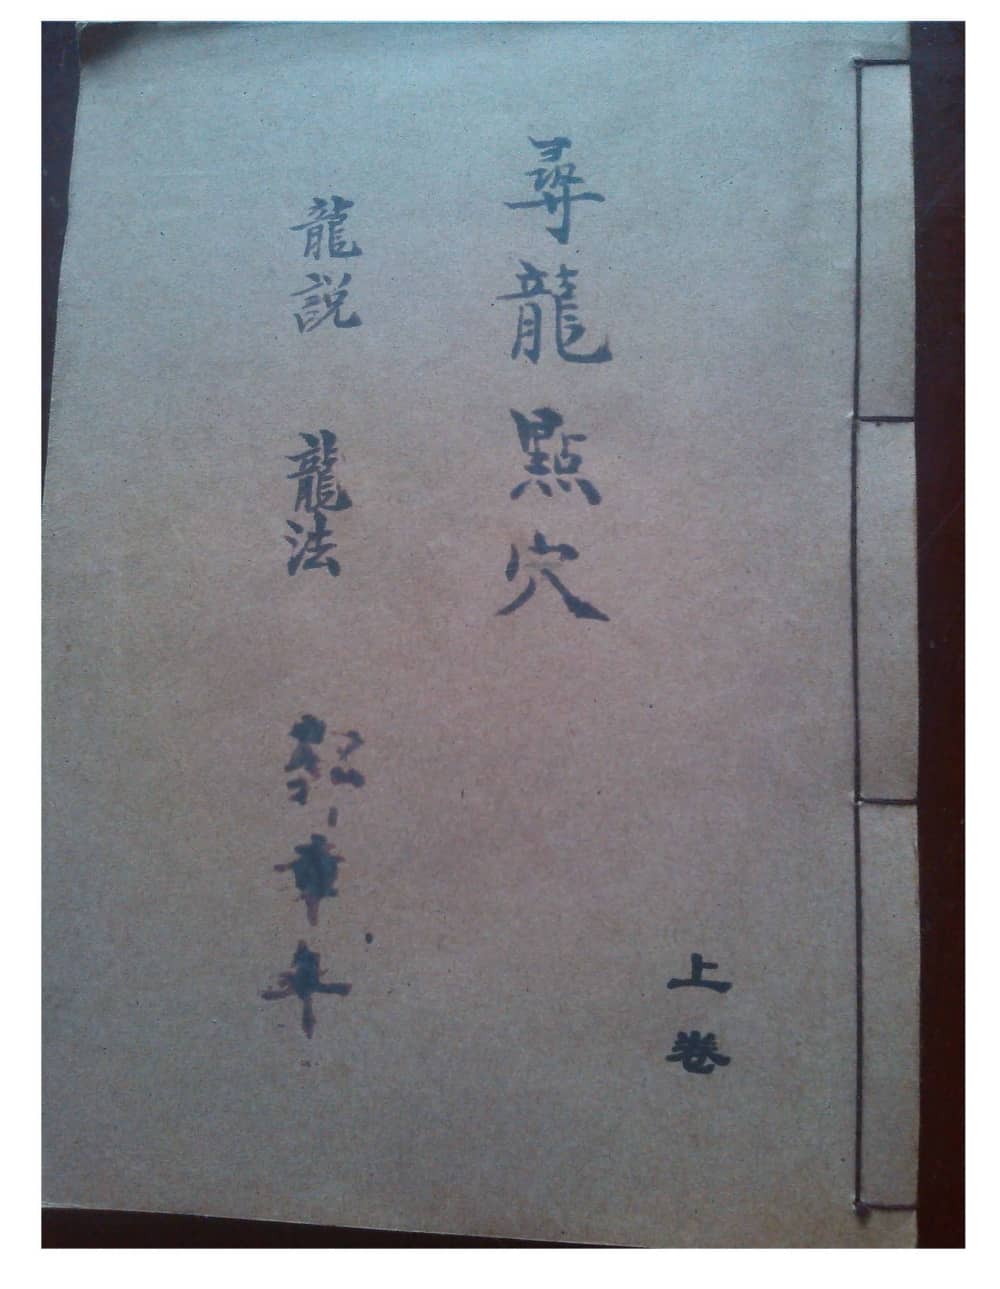 上卷
尋龍點穴
龍説 龍法